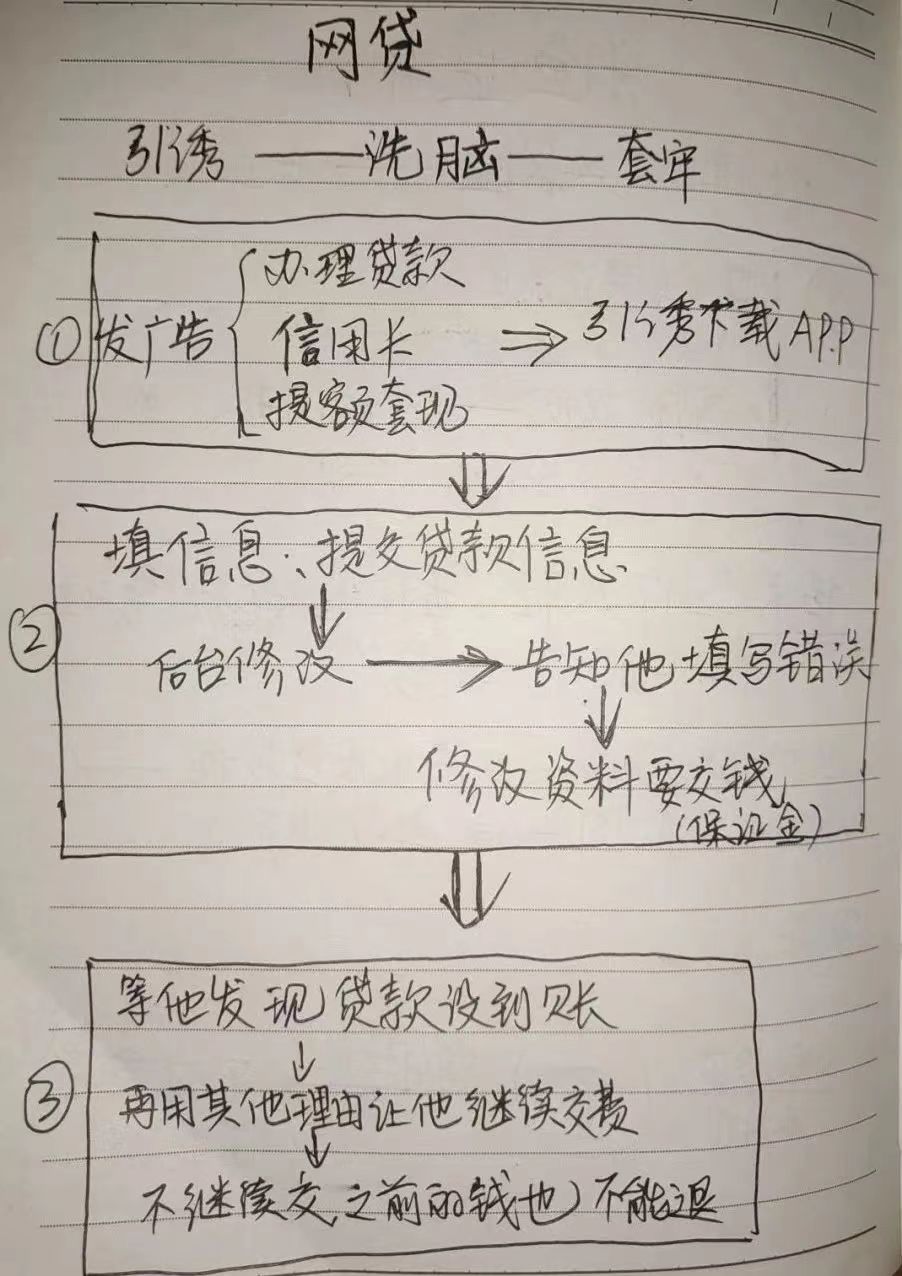 网贷
引诱——洗脑——套牢
① 发广告 办理贷款
信用卡
提额套现
⇒ 引诱下载APP
② 填信息、提交贷款信息
后台修改 → 告知他填写错误
修改资料要交钱
(保证金)
③ 等他发现贷款没到账
再用其他理由让他继续交费
不继续交,之前的钱也不能退